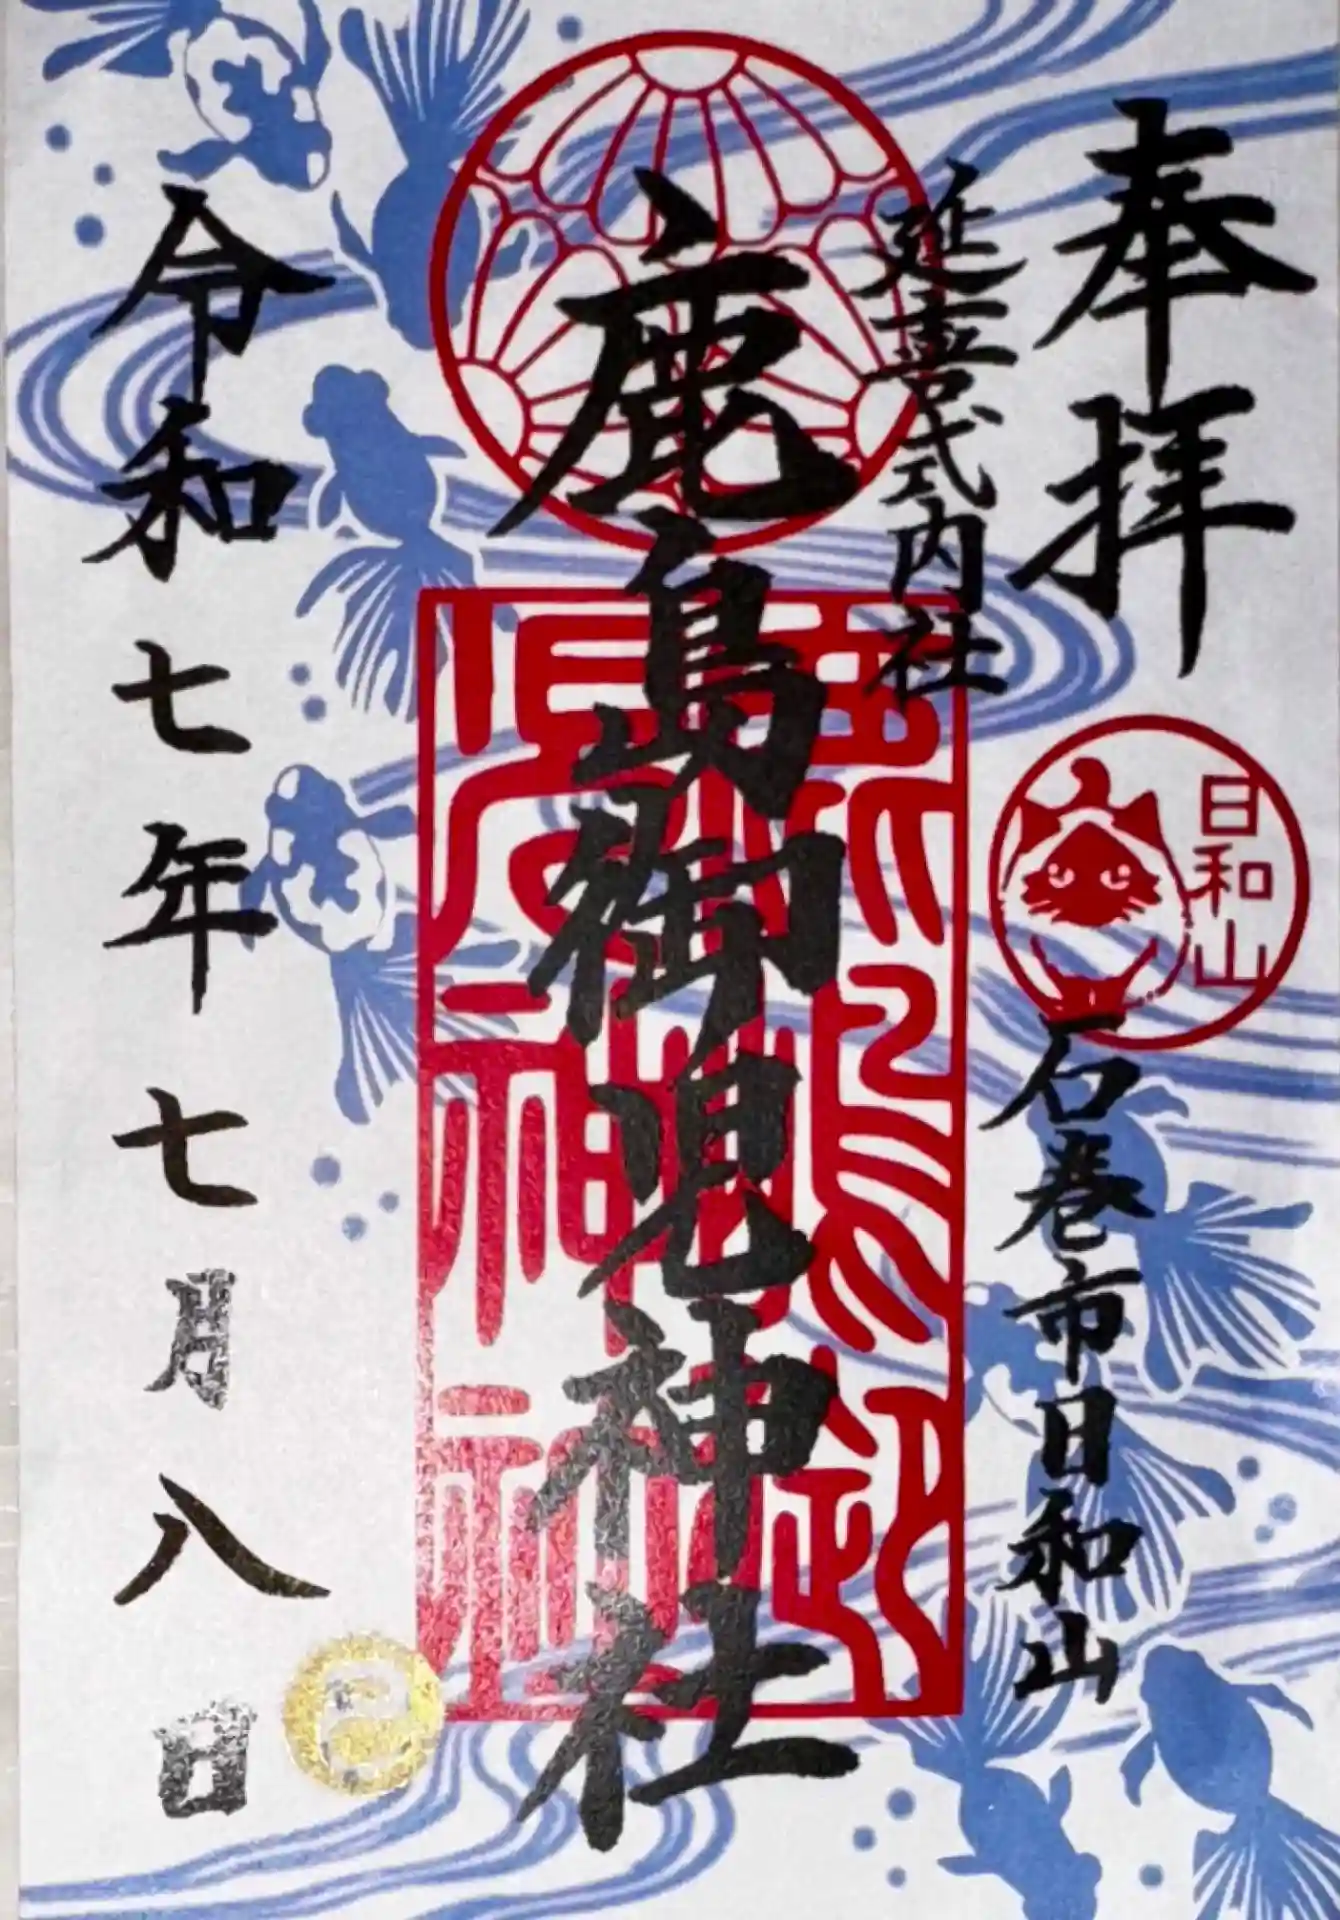 奉拝
延喜式内社
日和山
石巻市日和山
鹿島御児神社
令和七年七月八日
巳